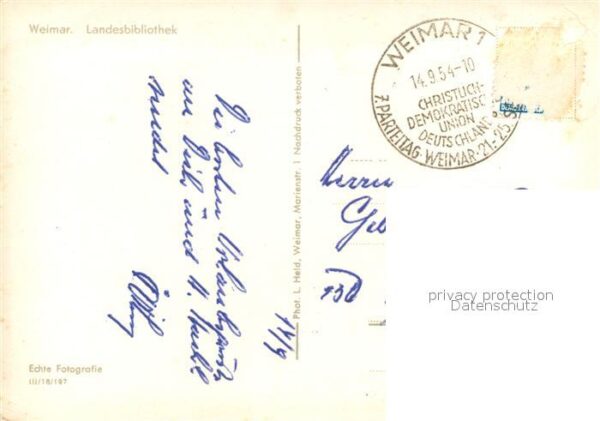 Weimar. Landesbibliothek
WEIMAR 1
14.9.54-10
CHRISTLICH-
DEMOKRATISCHE
UNION
DEUTSCHLANDS
7. PARTEITAG WEIMAR 21.-25.
Die besten Urlaubsgrüße
an Dich, und
sendet
14/9
Phot. L. Held, Weimar, Marienstr. 1 Nachdruck verboten
Herrn
privacy protection
Datenschutz
Echte Fotografie
III/18/197